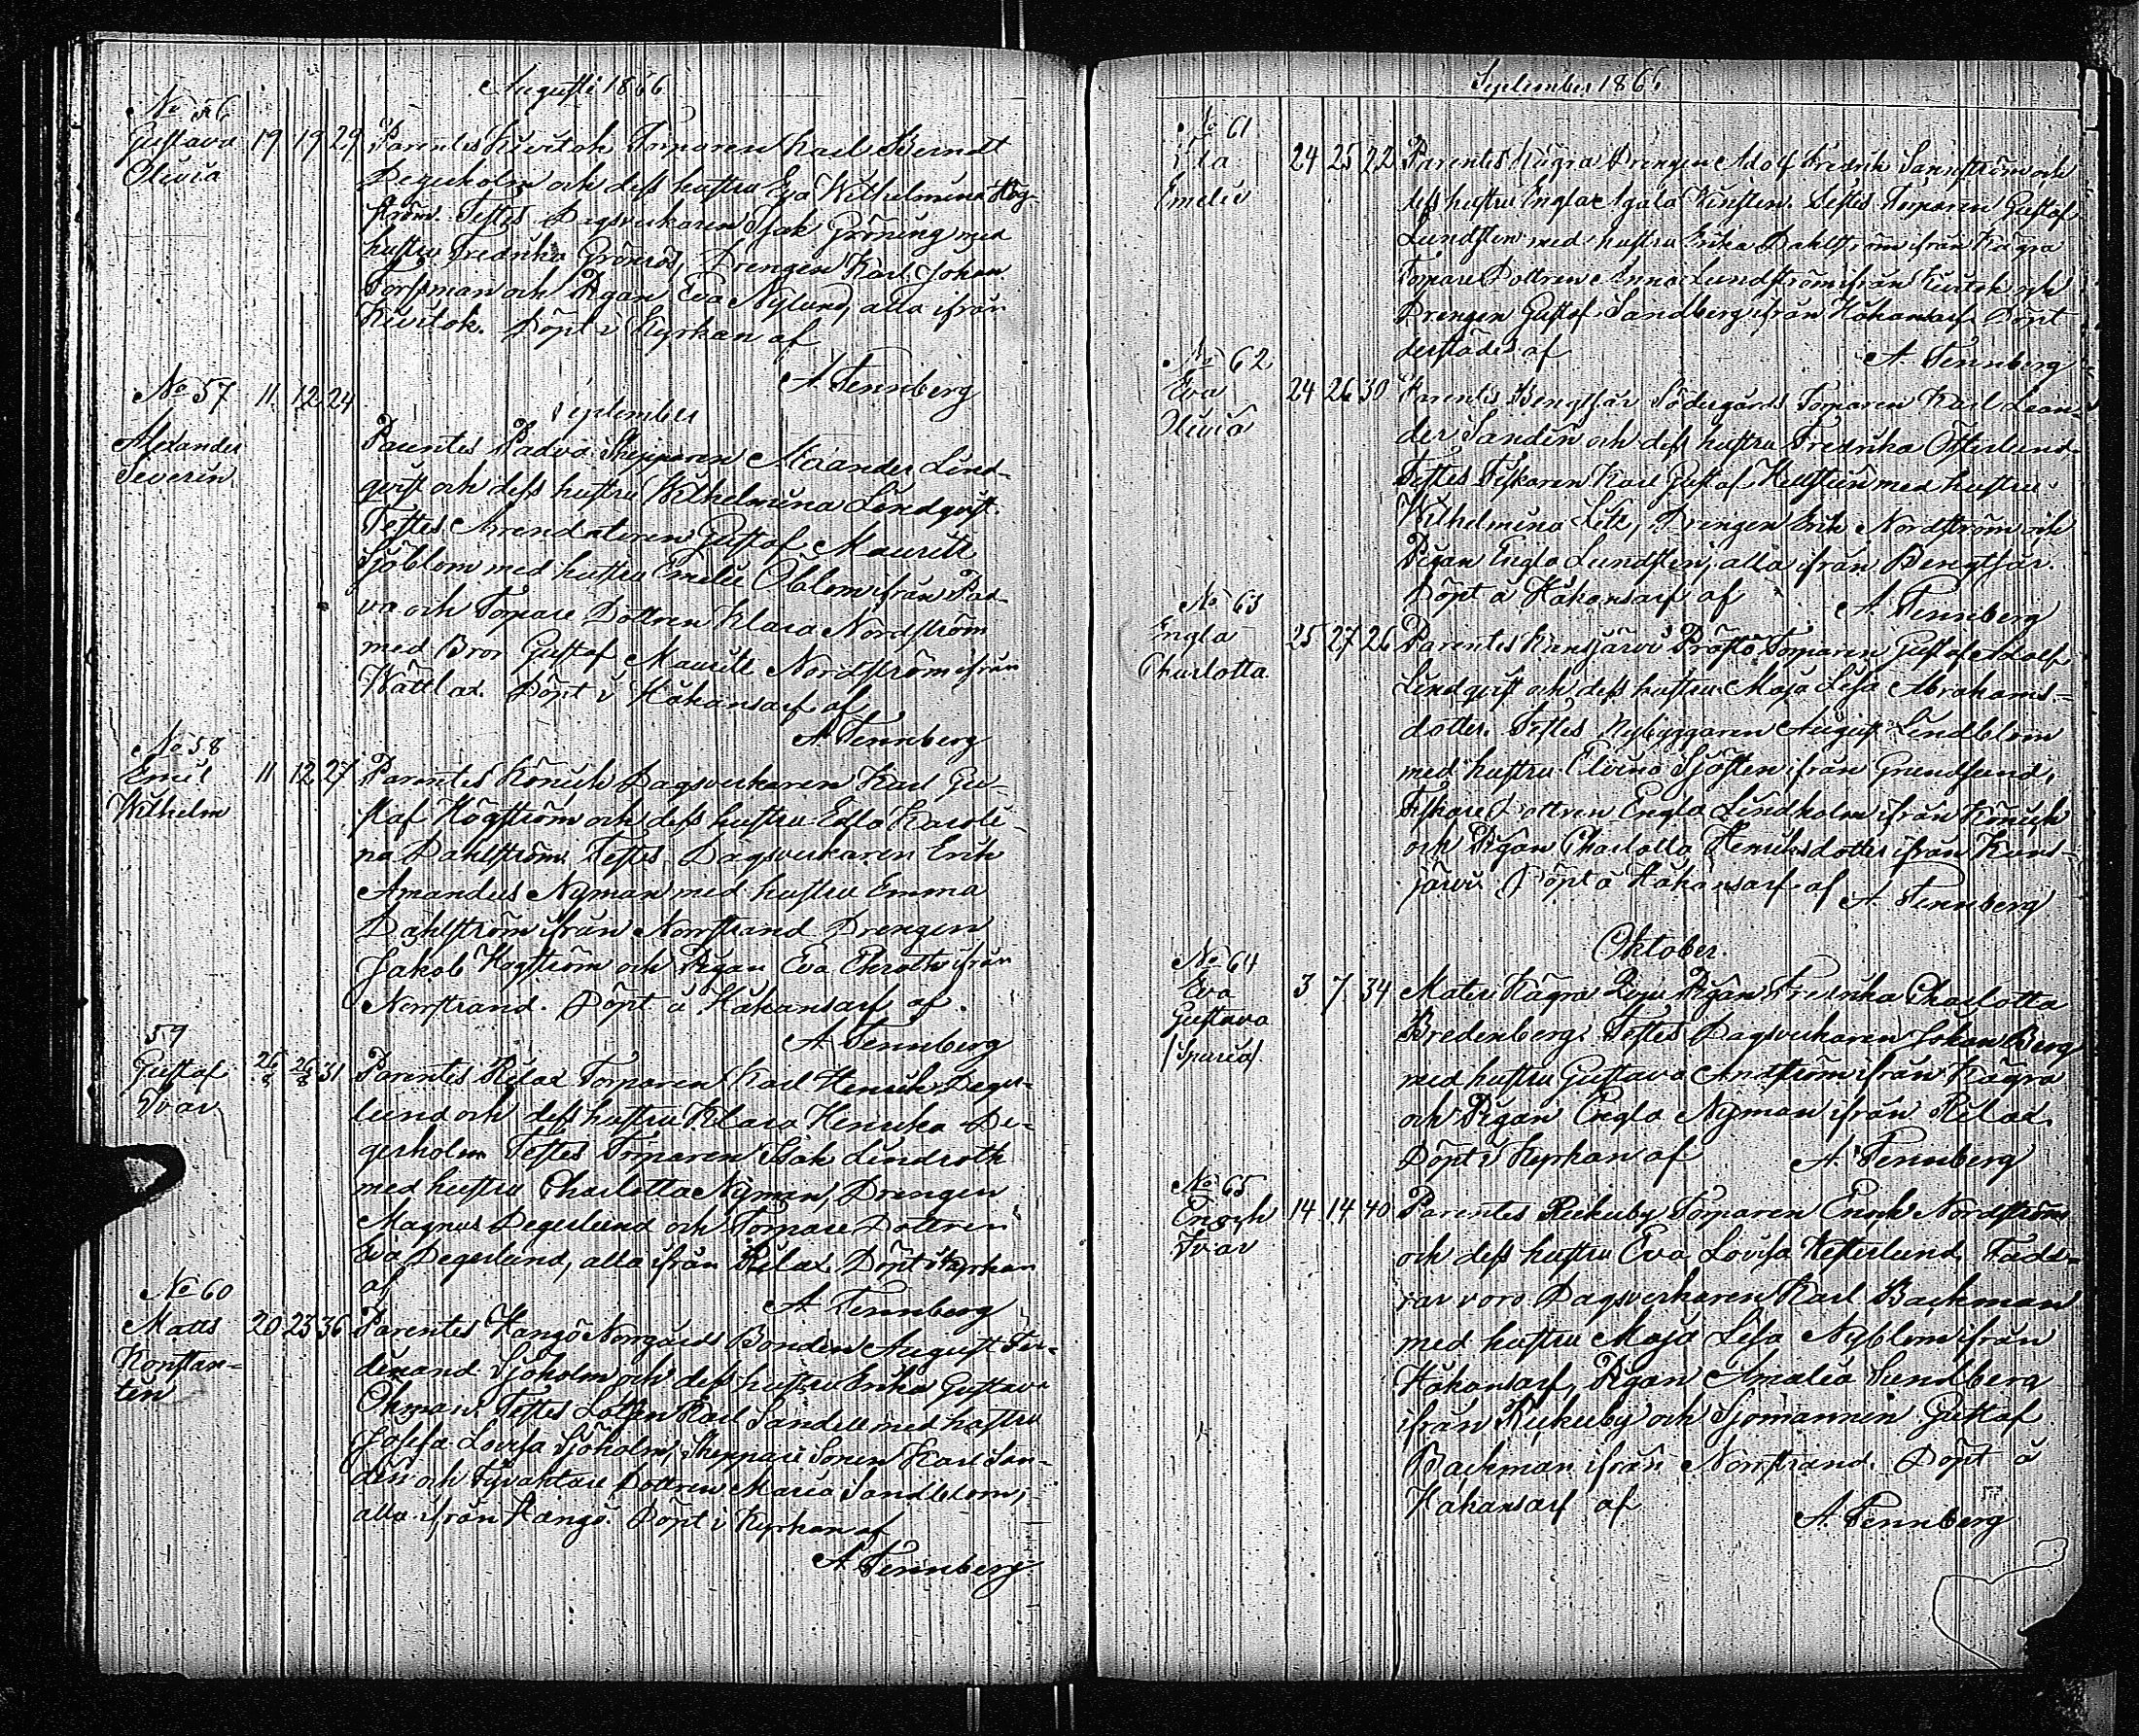 Augusti 1866
No 56
Gustava 19 19 29 Parentes Kivitok Torparen Karl Berndt
Olivia Degerholm och dess hustru Eva Wilhelmina Hög-
ström. Testes Dagsverkaren Isak Gröning med
hustru Fredrika Grönros, Drengen Karl Johan
Forssman och Pigan Eva Nylund, alla ifrån
Kivitok. Döpt i Kyrkan af
A. Tennberg
No 57 11 12 24
September
Alexander Parentes Padva Skepparen Alexander Lind-
Severin qvist och dess hustru Wilhelmina Lindqvist.
Testes Arrendatoren Gustof Mauritz
Sjöblom med hustru Emelie Öblom ifrån Pad-
va och Torpare Dottren Klara Nordström
med Bror Gustaf Mauritz Nordström ifrån
Wättlax. Döpt i Håkansarf af
A. Tennberg
No 58
Emil 11 12 27 Parentes Könick Dagsverkaren Karl Gu-
Wilhelm staf Högström och dess hustru Edla Karoli-
na Dahlström. Testes Dagsverkaren Erik
Amandus Nyman med hustru Emma
Dahlström ifrån Norrstrand Drengen
Jakob Högström och Pigan Eva Ekroth ifrån
Norrstrand. Döpt å Håkansarf af
A. Tennberg
59
Gustaf 26/8 26/8 31 Parentes Rilax Torparen Karl Henrik Deger-
Ivar lund och dess hustru Klara Henrika De-
gerholm Testes Torparen Isak Lindroth
med hustru Charlotta Nyman, Drengen
Magnus Degerlund och Torpare Dottren
Eva Degerlund, alla ifrån Rilax. Döpt i Kyrkan
af
A. Tennberg
No 60
Matts 20 23 36 Parentes Hangö Norrgårds Bonden August Fer-
Konstan- dinand Sjöholm och dess hustru Erika Gustava
tin Öhman. Testes Lotsen Karl Sandell med hustru
Josefa Lovisa Sjöholm, Skeppare Sonen Karl San-
dell och Fyrvaktare Dottren Maria Sandblom,
alla ifrån Hangö. Döpt i Kyrkan af
A. Tennberg
September 1866
No 61
24 25 22 Parentes Kägra Drengen Adolf Fredrik Sannström och
Emelie dess hustru Engla Agata Kinsten. Testes Torparen Gustaf
Lundsten med hustru Erika Dahlström ifrån Kägra
Torpare Dottren Anna Lundström ifrån Kivitok och
Drengen Gustof Sandberg ifrån Håkansarf Döpt
derstädes af
A. Tennberg
No 62
Eva 24 26 30 Parentes Bengtsår Södergårds Torparen Karl Lean-
Olivia der Sandin och dess hustru Fredrika Österlund.
Testes Fiskaren Karl Gustaf Hellstén med hustru
Wilhelmina Litz, Drengen Erik Nordström och
Pigan Engla Lundsten, alla ifrån Bengtsår.
Döpt å Håkansarf af
A. Tennberg
No 63
Engla 25 27 26 Parentes Kunsjärvi Prästö Torparen Gustof Adolf
Charlotta Lindqvist och dess hustru Maja Lisa Abrahams-
dotter. Testes Nybyggaren August Lindblom
med hustru Elvina Sjösten ifrån Grundsund,
Fiskare Dottren Engla Lindholm ifrån Könick
och Pigan Charlotta Henriksdotter ifrån Kuns-
järvi Döpt å Håkansarf af
A. Tennberg
Oktober.
No 64
Eva 3 7 34 Mater Kägra Pigan Fredrika Charlotta
Gustava Bredenberg. Testes Dagsverkaren Johan Berg
/Spuria/. med hustru Gustava Andström ifrån Kägra
och Pigan Engla Nyman ifrån Rilax.
Döpt i Kyrkan af
A. Tennberg
No 65
Enoch 14 14 40 Parentes Rekuby Torparen Enok Nordström
Ivar och dess hustru Eva Lovisa Westerlund. Fadd-
rar voro Dagsverkaren Karl Backman
med hustru Maja Lisa Nyblom ifrån
Håkansarf, Pigan Amalia Sundberg
ifrån Rekuby och Sjömannen Gustaf
Backman ifrån Norrstrand. Döpt å
Håkansarf af
A. Tennberg